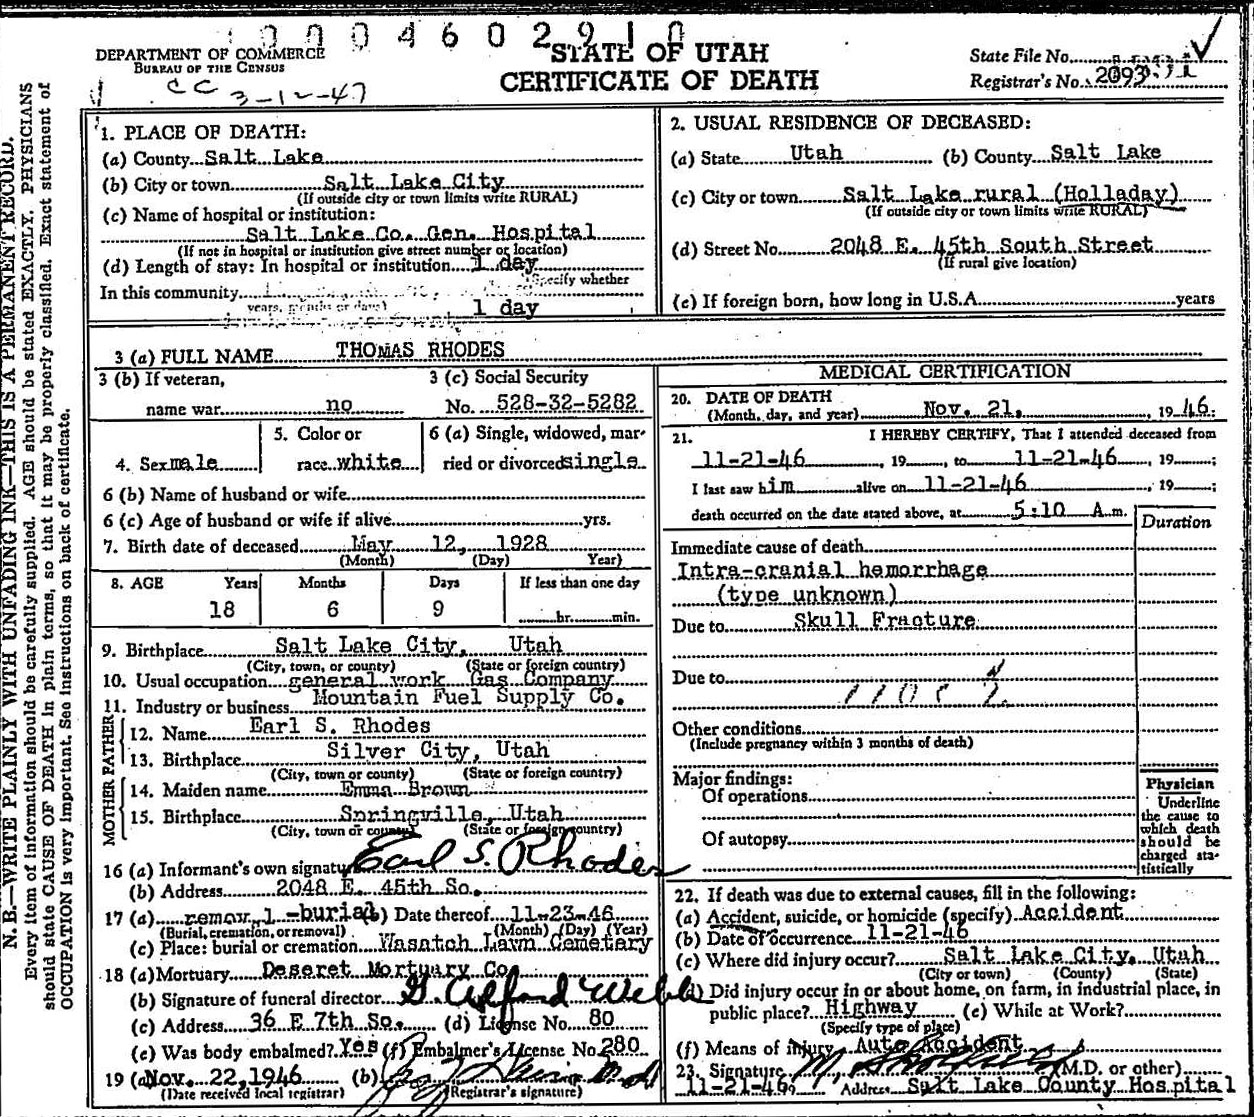 0004602910
DEPARTMENT OF COMMERCE
BUREAU OF THE CENSUS
CC 3-12-47
STATE OF UTAH
CERTIFICATE OF DEATH
State File No.
Registrar's No. 2093
N. B.—WRITE PLAINLY WITH UNFADING INK—THIS IS A PERMANENT RECORD.
Every item of information should be carefully supplied. AGE should be stated EXACTLY. PHYSICIANS
should state CAUSE OF DEATH in plain terms, so that it may be properly classified. Exact statement of
OCCUPATION is very important. See instructions on back of certificate.
1. PLACE OF DEATH:
(a) County Salt Lake
(b) City or town Salt Lake City
(If outside city or town limits write RURAL)
(c) Name of hospital or institution:
Salt Lake Co. Gen. Hospital
(If not in hospital or institution give street number or location)
(d) Length of stay: In hospital or institution 1 day
(Specify whether
In this community
years, months or days) 1 day
2. USUAL RESIDENCE OF DECEASED:
(a) State Utah (b) County Salt Lake
(c) City or town Salt Lake rural (Holladay)
(If outside city or town limits write RURAL)
(d) Street No. 2048 E. 45th South Street
(If rural give location)
(e) If foreign born, how long in U.S.A. years
3 (a) FULL NAME THOMAS RHODES
3 (b) If veteran,
name war no
3 (c) Social Security
No. 528-32-5282
4. Sex male
5. Color or
race white
6 (a) Single, widowed, mar-
ried or divorced single
6 (b) Name of husband or wife
6 (c) Age of husband or wife if alive yrs.
7. Birth date of deceased May 12, 1928
(Month) (Day) Year)
8. AGE Years Months Days If less than one day
18 6 9 hr. min.
9. Birthplace Salt Lake City, Utah
(City, town, or county) (State or foreign country)
10. Usual occupation general work Gas Company
11. Industry or business Mountain Fuel Supply Co.
FATHER
12. Name Earl S. Rhodes
13. Birthplace Silver City, Utah
(City, town or county) (State or foreign country)
MOTHER
14. Maiden name Emma Brown
15. Birthplace Springville, Utah
(City, town or county) (State or foreign country)
16 (a) Informant's own signature Earl S. Rhodes
(b) Address 2048 E. 45th So.
17 (a) removal-burial (b) Date thereof 11-23-46
(Burial, cremation, or removal) (Month) (Day) (Year)
(c) Place: burial or cremation Wasatch Lawn Cemetary
18 (a) Mortuary Deseret Mortuary Co
(b) Signature of funeral director G. Alford Webb
(c) Address 36 E 7th So. (d) License No. 80
(e) Was body embalmed? Yes (f) Embalmer's License No. 280
19 (a) Nov. 22, 1946 (b)
(Date received local registrar) (Registrar's signature)
MEDICAL CERTIFICATION
20. DATE OF DEATH
(Month, day, and year) Nov. 21, 1946.
21. I HEREBY CERTIFY, That I attended deceased from
11-21-46, 19 , to 11-21-46, 19 ;
I last saw him alive on 11-21-46, 19 ;
death occurred on the date stated above, at 5:10 A.m.
Duration
Immediate cause of death
Intra-cranial hemorrhage
(type unknown)
Due to Skull Fracture
Due to
Other conditions
(Include pregnancy within 3 months of death)
Major findings:
Of operations
Of autopsy
Physician
Underline
the cause to
which death
should be
charged sta-
tistically
22. If death was due to external causes, fill in the following:
(a) Accident, suicide, or homicide (specify) Accident
(b) Date of occurrence 11-21-46
(c) Where did injury occur? Salt Lake City, Utah
(City or town) (County) (State)
(d) Did injury occur in or about home, on farm, in industrial place, in
public place? Highway (e) While at Work?
(Specify type of place)
(f) Means of injury Auto Accident
23. Signature (M.D. or other)
11-21-46 Address Salt Lake County Hospital